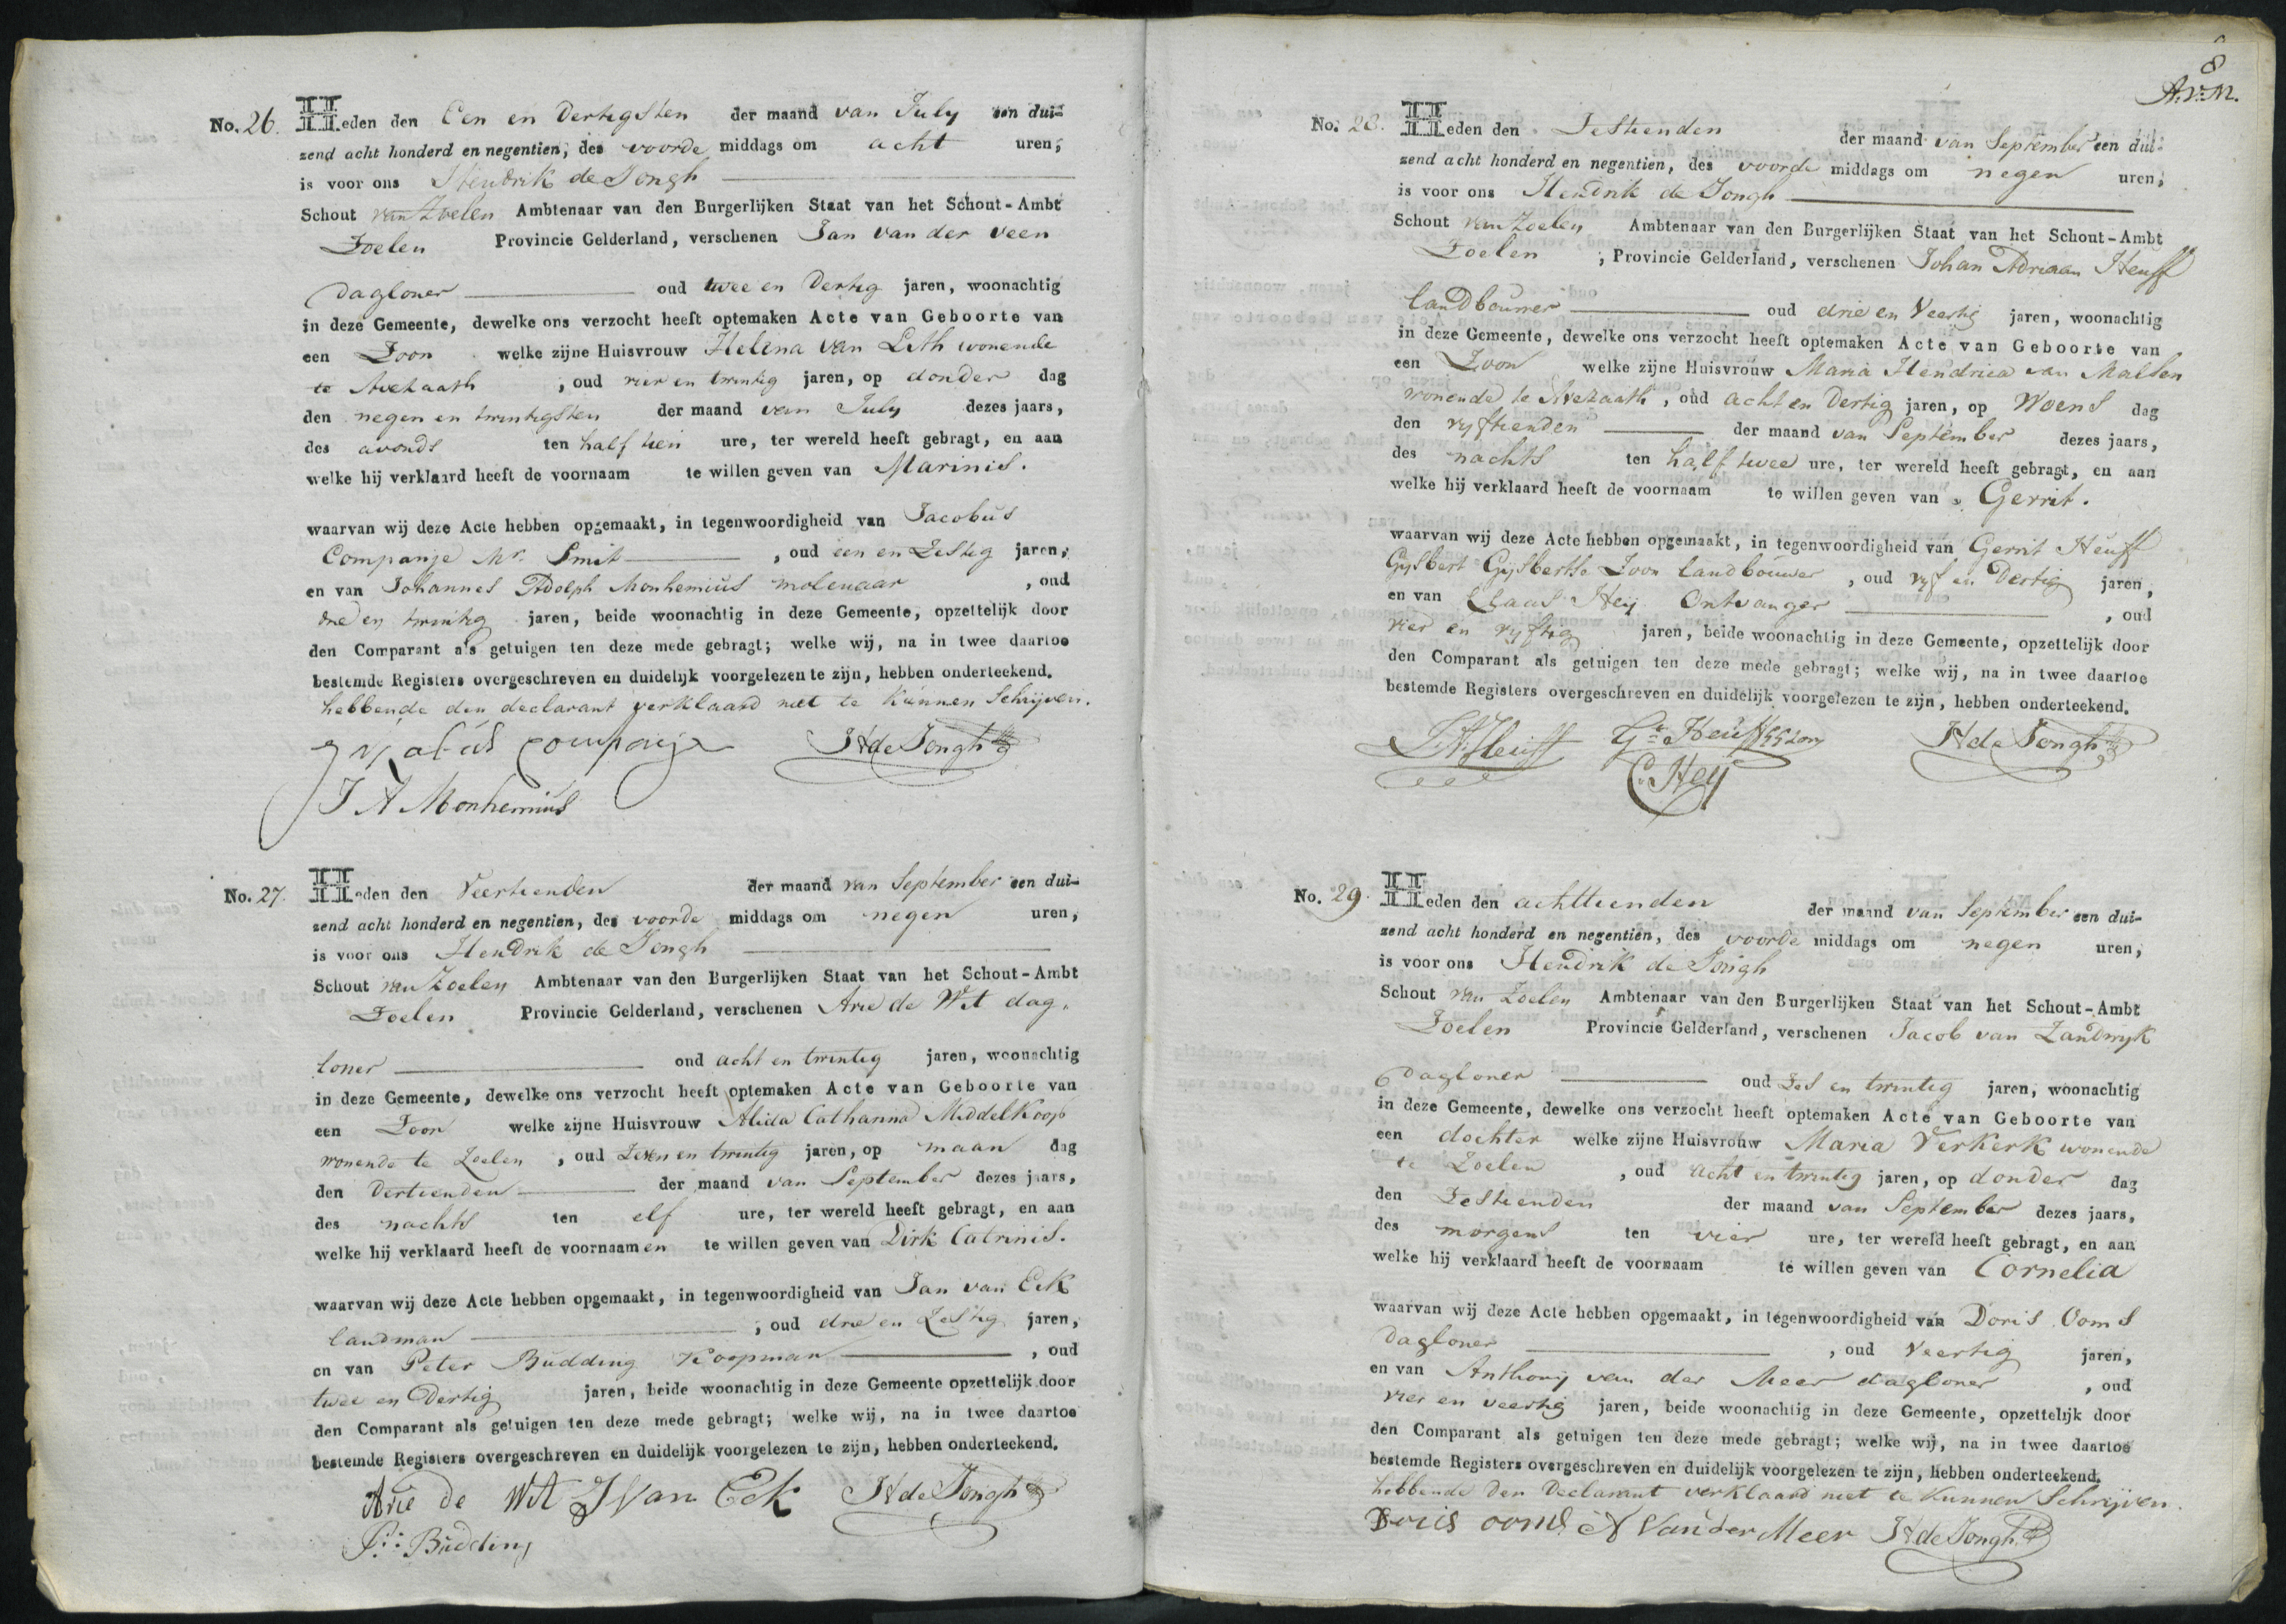 No. 26. Heden den Een en Dertigsten der maand van July een dui-
zend acht honderd en negentien, des voorde middags om acht uren,
is voor ons Hendrik de Jongh
Schout van Zoelen Ambtenaar van den Burgerlijken Staat van het Schout-Ambt
Zoelen Provincie Gelderland, verschenen Jan van der veen
Dagloner oud twee en Dertig jaren, woonachtig
in deze Gemeente, dewelke ons verzocht heeft optemaken Acte van Geboorte van
een Zoon welke zijne Huisvrouw Helena van Lith wonende
te Avezaath, oud vier en twintig jaren, op donder dag
den negen en twintigsten der maand van July dezes jaars,
des avonds ten half tien ure, ter wereld heeft gebragt, en aan
welke hij verklaard heeft de voornaam te willen geven van Marinis.
waarvan wij deze Acte hebben opgemaakt, in tegenwoordigheid van Jacobus
Companje Mr. Smit, oud een en Zestig jaren,
en van Johannes Adolph Monhemius molenaar, oud
drie en twintig jaren, beide woonachtig in deze Gemeente, opzettelijk door
den Comparant als getuigen ten deze mede gebragt; welke wij, na in twee daartoe
bestemde Registers overgeschreven en duidelijk voorgelezen te zijn, hebben onderteekend.
hebbende den declarant verklaard niet te kunnen Schrijven.
companje HdeJongh
J A Monhemius
No. 27. Heden den Veertienden der maand van September een dui-
zend acht honderd en negentien, des voorde middags om negen uren,
is voor ons Hendrik de Jongh
Schout van Zoelen Ambtenaar van den Burgerlijken Staat van het Schout-Ambt
Zoelen Provincie Gelderland, verschenen Arie de Wit dag.
loner oud acht en twintig jaren, woonachtig
in deze Gemeente, dewelke ons verzocht heeft optemaken Acte van Geboorte van
een Zoon welke zijne Huisvrouw Alida Catharina MiddelKoop
wonende te Zoelen, oud Zeven en twintig jaren, op maan dag
den Dertienden der maand van September dezes jaars,
des nachts ten elf ure, ter wereld heeft gebragt, en aan
welke hij verklaard heeft de voornaamen te willen geven van Dirk Catrinis.
waarvan wij deze Acte hebben opgemaakt, in tegenwoordigheid van Jan van Eck
landman, oud drie en Zestig jaren,
en van Peter Budding Koopman, oud
twee en Dertig jaren, beide woonachtig in deze Gemeente opzettelijk door
den Comparant als getuigen ten deze mede gebragt; welke wij, na in twee daartoe
bestemde Registers overgeschreven en duidelijk voorgelezen te zijn, hebben onderteekend.
Arie de Wit JVan Eck HdeJongh
P. Budding
8
A.v.M.
No. 28. Heden den Zestienden der maand van September een dui-
zend acht honderd en negentien, des voorde middags om negen uren,
is voor ons Hendrik de Jongh
Schout van Zoelen Ambtenaar van den Burgerlijken Staat van het Schout-Ambt
Zoelen, Provincie Gelderland, verschenen Johan Adriaan Heuff
landbouwer oud drie en Veertig jaren, woonachtig
in deze Gemeente, dewelke ons verzocht heeft optemaken Acte van Geboorte van
een Zoon welke zijne Huisvrouw Maria Hendrica van Malsen
wonende te Avezaath, oud acht en Dertig jaren, op Woens dag
den vyftienden der maand van September dezes jaars,
des nachts ten half twee ure, ter wereld heeft gebragt, en aan
welke hij verklaard heeft de voornaam te willen geven van Gerrit.
waarvan wij deze Acte hebben opgemaakt, in tegenwoordigheid van Gerrit Heuff
Gysbert Gysbertse Zoon landbouwer, oud vyf en Dertig jaren,
en van Claas Heij Ontvanger, oud
vier en vyftig jaren, beide woonachtig in deze Gemeente, opzettelijk door
den Comparant als getuigen ten deze mede gebragt; welke wij, na in twee daartoe
bestemde Registers overgeschreven en duidelijk voorgelezen te zijn, hebben onderteekend.
JAHeuff Gt Heuff GGzoon HdeJongh
C. Heij
No. 29. Heden den achttienden der maand van September een dui-
zend acht honderd en negentien, des voorde middags om negen uren,
is voor ons Hendrik de Jongh
Schout van Zoelen Ambtenaar van den Burgerlijken Staat van het Schout-Ambt
Zoelen Provincie Gelderland, verschenen Jacob van Zandwyk
Dagloner oud Zes en twintig jaren, woonachtig
in deze Gemeente, dewelke ons verzocht heeft optemaken Acte van Geboorte van
een dochter welke zijne Huisvrouw Maria VerKerK wonende
te Zoelen, oud acht en twintig jaren, op donder dag
den Zestienden der maand van September dezes jaars,
des morgens ten vier ure, ter wereld heeft gebragt, en aan
welke hij verklaard heeft de voornaam te willen geven van Cornelia
waarvan wij deze Acte hebben opgemaakt, in tegenwoordigheid van Doris Ooms
Dagloner, oud Veertig jaren,
en van Anthonij van der Meer dagloner, oud
vier en veertig jaren, beide woonachtig in deze Gemeente, opzettelijk door
den Comparant als getuigen ten deze mede gebragt; welke wij, na in twee daartoe
bestemde Registers overgeschreven en duidelijk voorgelezen te zijn, hebben onderteekend.
hebbende den Declarant verklaard niet te kunnen Schrijven.
Doris ooms A Van der Meer HdeJongh